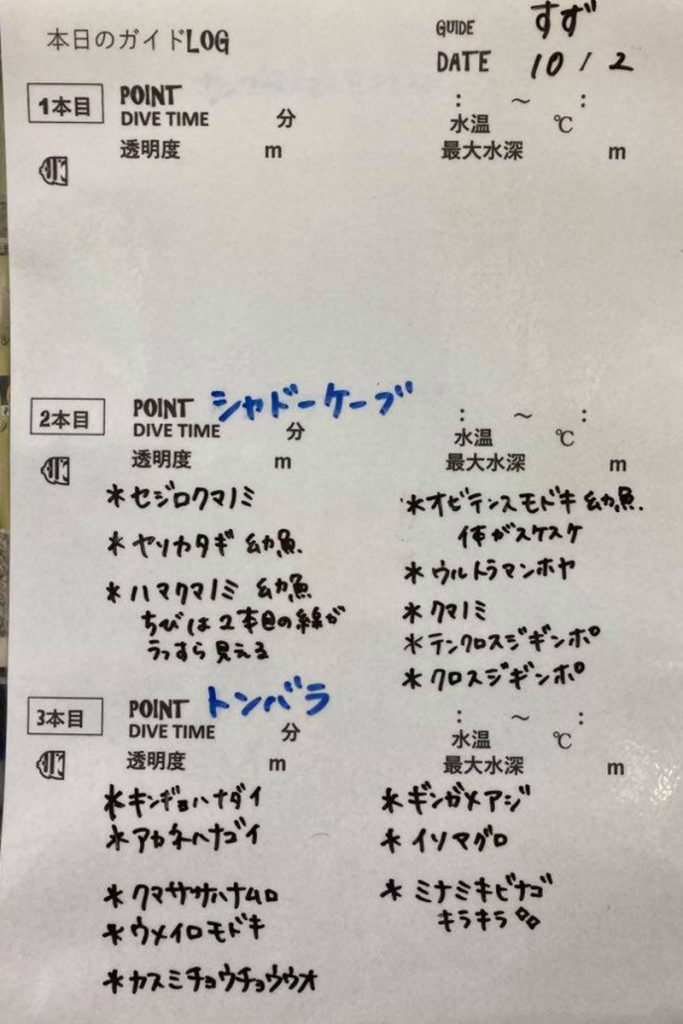 本日のガイドLOG
GUIDE すず
DATE 10/2
1本目 POINT : ～ :
DIVE TIME 分 水温 ℃
透明度 m 最大水深 m
2本目 POINT シャドーケーブ : ～ :
DIVE TIME 分 水温 ℃
透明度 m 最大水深 m
*セジロクマノミ
*ヤリカタギ 幼魚.
*ハマクマノミ 幼魚
ちびは2本目の線が
うっすら見える
*オビテンスモドキ 幼魚.
体がスケスケ
*ウルトラマンホヤ
*クマノミ
*テンクロスジギンポ
*クロスジギンポ
3本目 POINT トンバラ : ～ :
DIVE TIME 分 水温 ℃
透明度 m 最大水深 m
*キンギョハナダイ
*アカネハナゴイ
*クマササハナムロ
*ウメイロモドキ
*カスミチョウチョウウオ
*ギンガメアジ
*イソマグロ
*ミナミキビナゴ
キラキラ